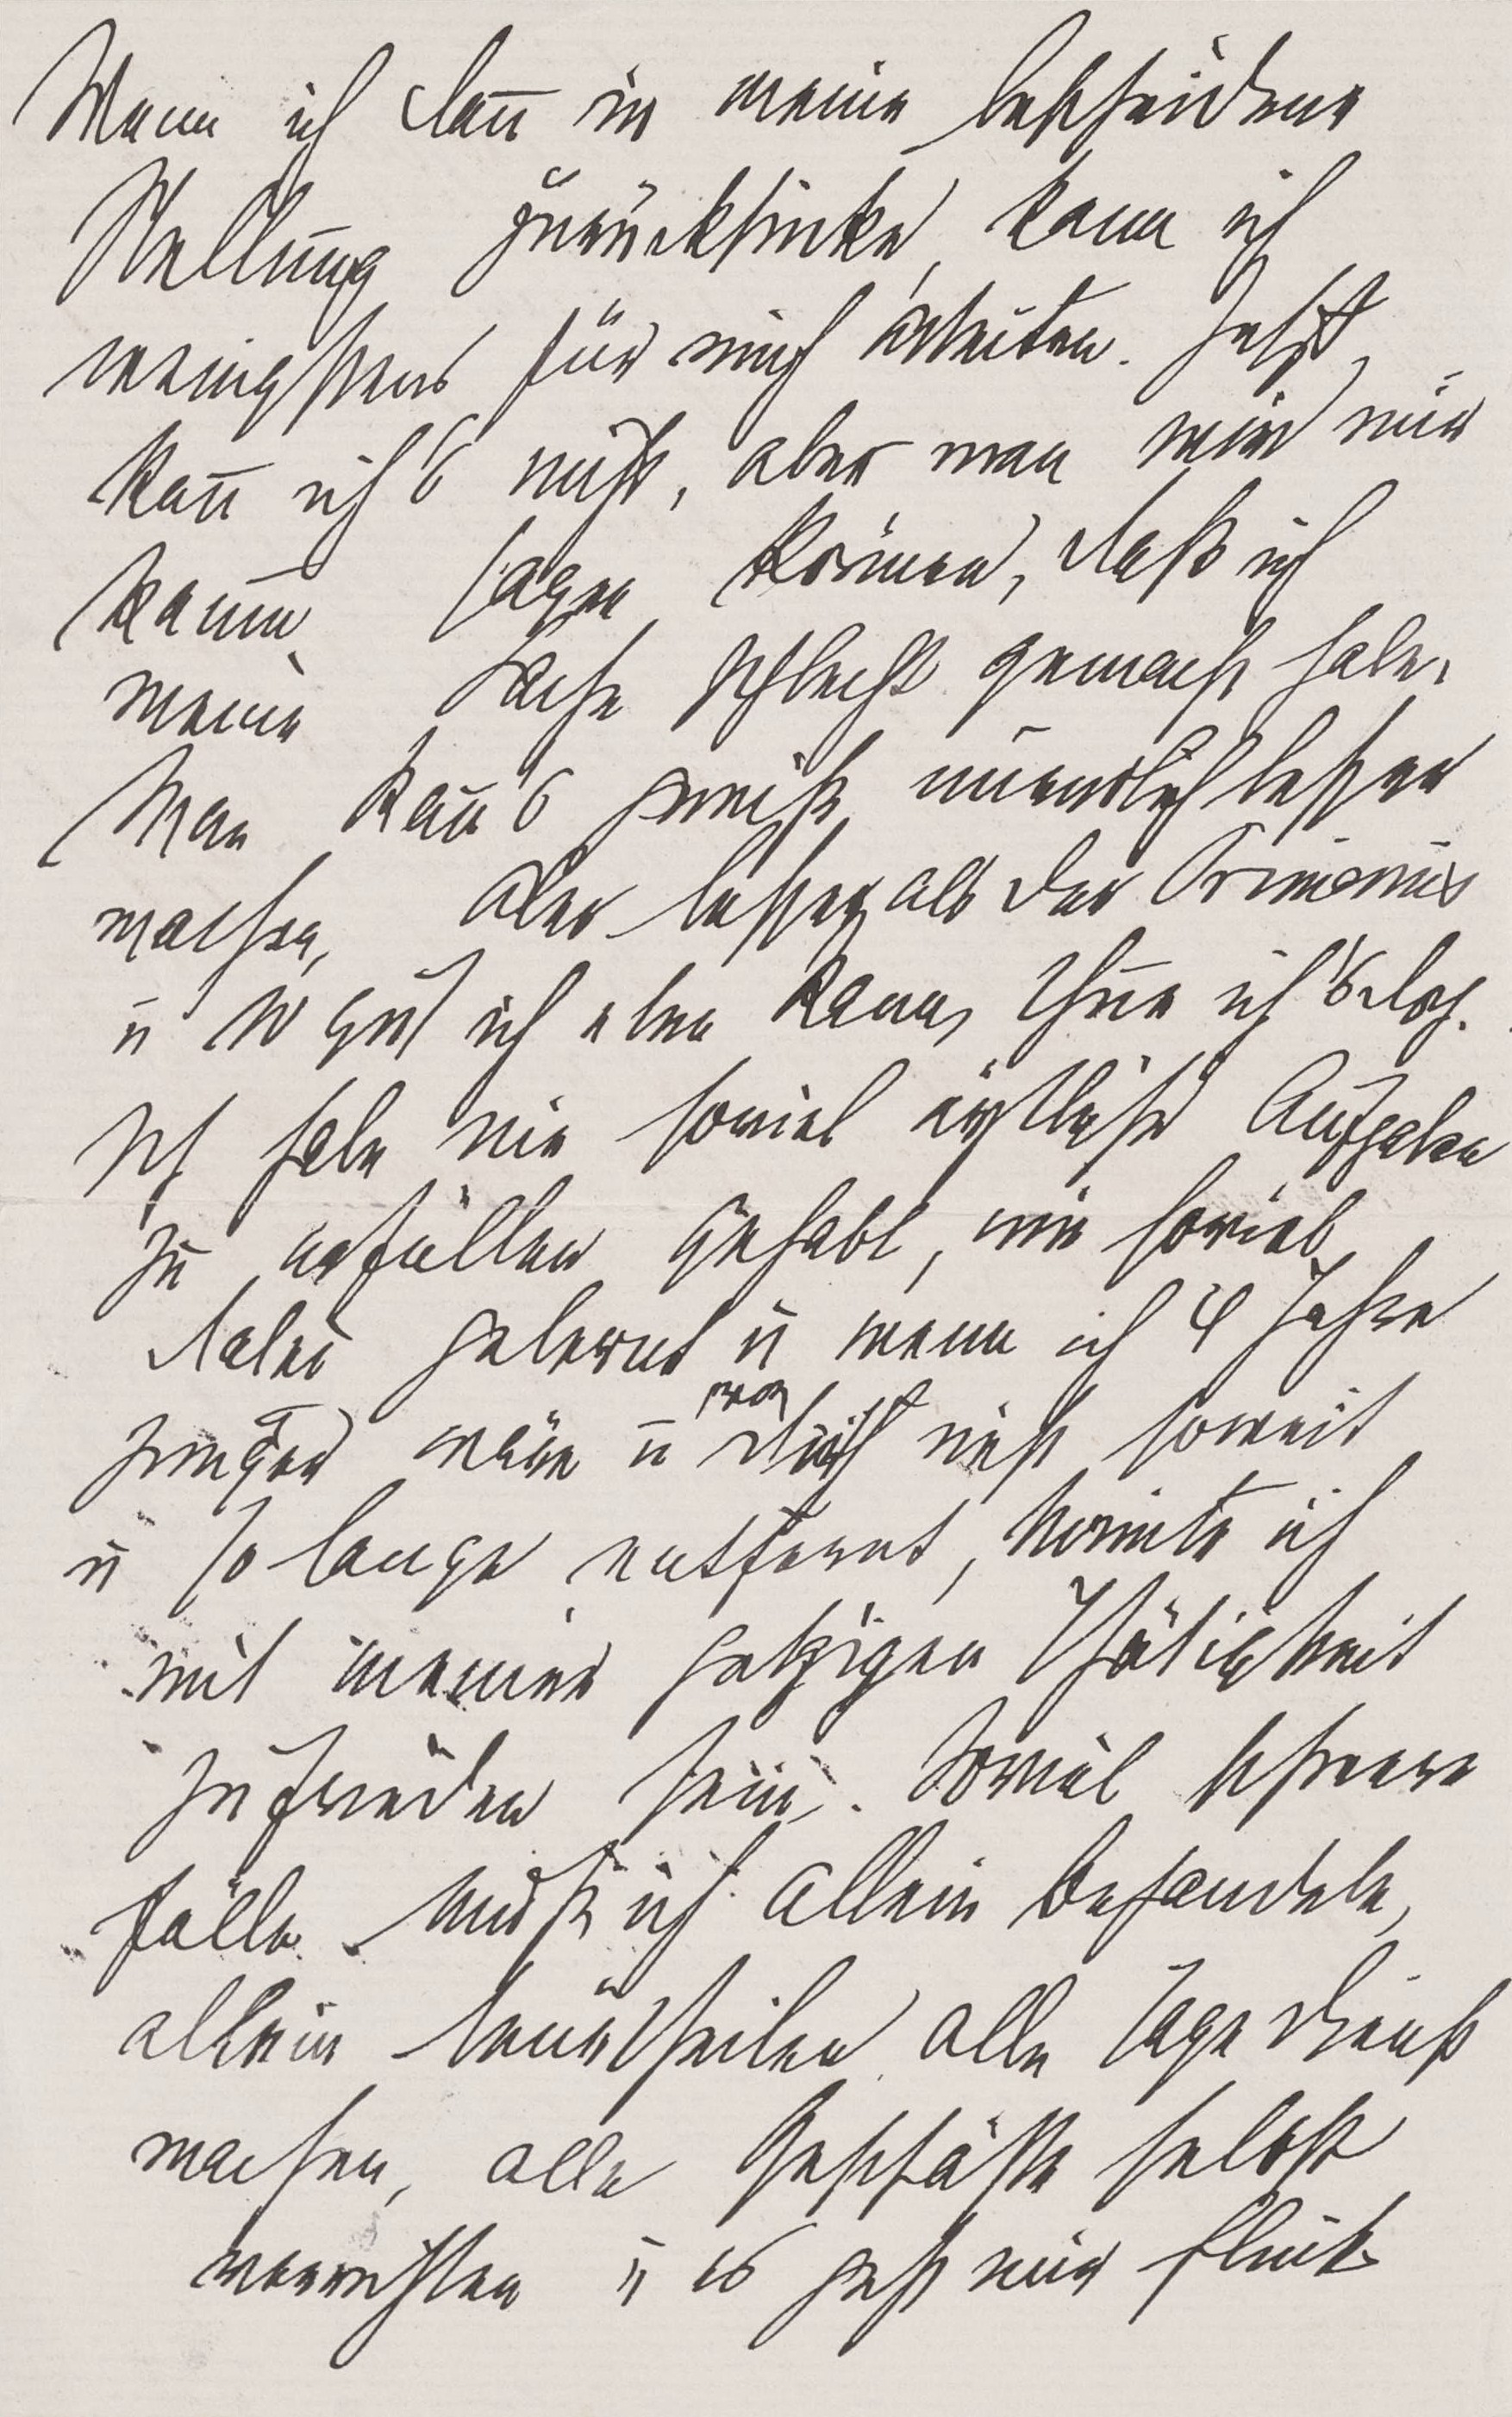 Wenn ich dan̄ in meine bescheidene
Stellung zurücksinke, kann ich
wenigstens für mich arbeiten. Jetzt
kan̄ ich's nicht, aber man wird mir
kaum sagen können, daß ich
meine Sache schlecht gemacht habe.
Man kan̄'s gewiß unendlich besser
machen, aber besser als der Primarius
u so gut ich eben kann, thue ich's doch.
Ich habe nie soviel ärztliche Aufgaben
zu erfüllen gehabt, nie soviel
dabei gelernt u wenn ich 4 Jahre
jünger wäre u von Dir nicht soweit
u so lange entfernt, könnte ich
mit meiner jetzigen Thätigkeit
zufrieden sein. Soviel schwere
Fälle muß ich allein behandeln,
allein beurtheilen, alle Tage Dienst
machen, alle Geschäfte selbst
verrichten u es geht mir flink